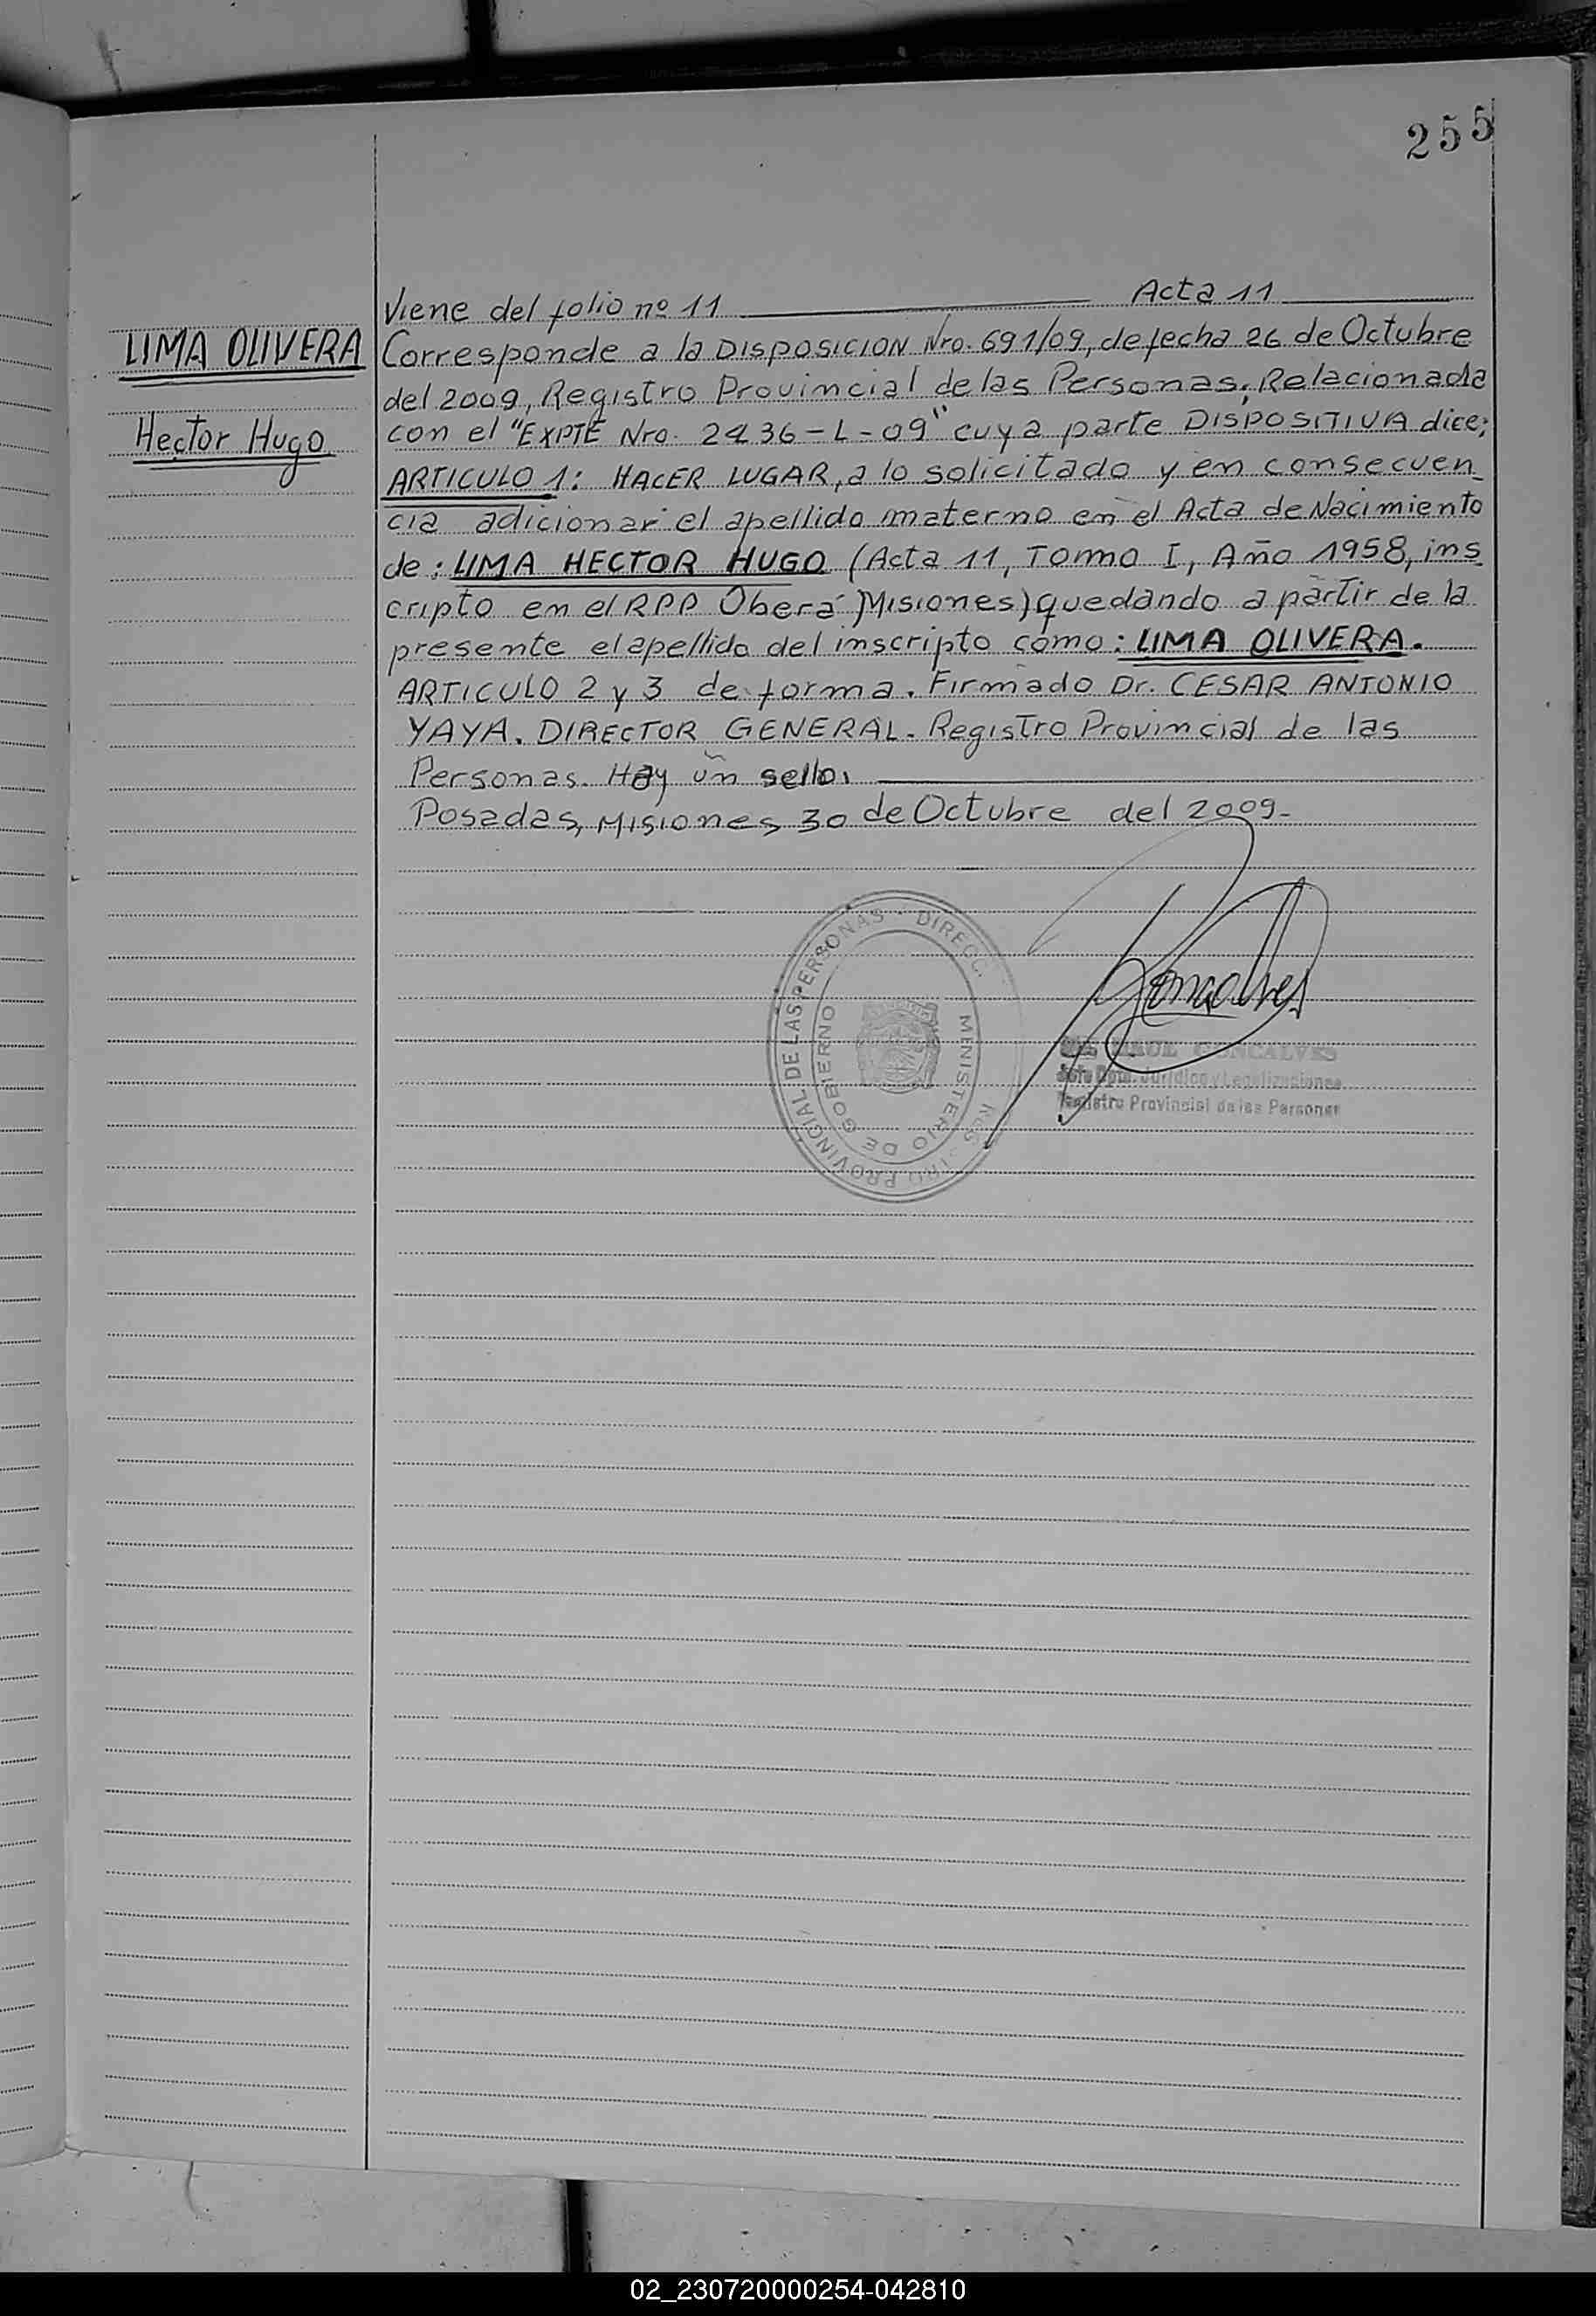 255
Viene del folio nº 11 Acta 11
LIMA OLIVERA
Hector Hugo
Corresponde a la DISPOSICION Nro. 691/09, de fecha 26 de Octubre
del 2009, Registro Provincial de las Personas; Relacionada
con el "EXPTE Nro. 2436-L-09" cuya parte DISPOSITIVA dice;
ARTICULO 1: HACER LUGAR, a lo solicitado y en consecuen_
cia adicionar el apellido materno en el Acta de Nacimiento
de: LIMA HECTOR HUGO (Acta 11, Tomo I, Año 1958, ins_
cripto en el RPP Oberá Misiones) quedando a partir de la
presente el apellido del inscripto cómo: LIMA OLIVERA.
ARTICULO 2 y 3 de forma. Firmado Dr. CESAR ANTONIO
YAYA. DIRECTOR GENERAL. Registro Provincial de las
Personas. Hay un sello.
Posadas, Misiones 30 de Octubre del 2009-
Goncalves
RAUL GONCALVES
Jefe Dpto. Jurídico y Legalizaciones
Registro Provincial de las Personas
PROVINCIAL DE LAS PERSONAS - DIRECC.
MINISTERIO DE GOBIERNO
02_230720000254-042810